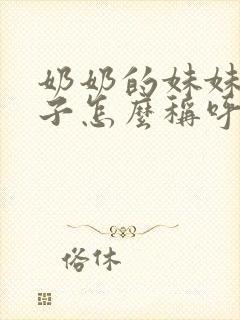 奶奶的妹妹
子怎麼稱呼
俗休